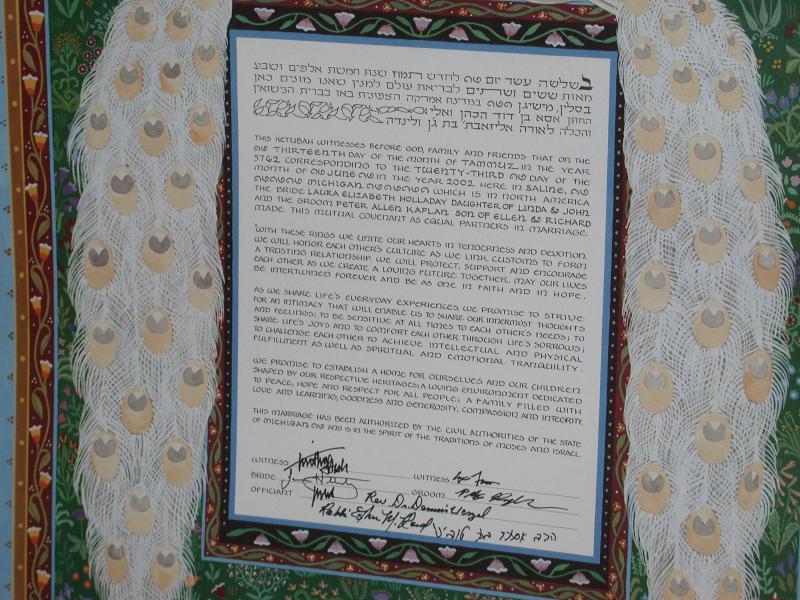 בשלשה עשר יום פה לחדש תמוז שנת חמשת אלפים ושבע
מאות ששים ושתים לבריאת עולם למנין שאנו מונים כאן
בסלין, משיגן הפה במדינת אמריקה הצפונית באו בברית הנישואין
החתן אסא בן דוד הכהן ואלי
והכלה לאורה אליזאבת׳ בת גן ולינדה.
THIS KETUBAH WITNESSES BEFORE GOD, FAMILY AND FRIENDS THAT ON THE
פה THIRTEENTH DAY OF THE MONTH OF TAMMUZ IN THE YEAR
5762 CORRESPONDING TO THE TWENTY-THIRD פה DAY OF THE
MONTH OF פה JUNE פה IN THE YEAR 2002 HERE IN SALINE, פה
פהפהפה MICHIGAN פהפהפהפה WHICH IS IN NORTH AMERICA
THE BRIDE LAURA ELIZABETH HOLLADAY DAUGHTER OF LINDA & JOHN
AND THE GROOM PETER ALLEN KAPLAN SON OF ELLEN & RICHARD
MADE THIS MUTUAL COVENANT AS EQUAL PARTNERS IN MARRIAGE.
WITH THESE RINGS WE UNITE OUR HEARTS IN TENDERNESS AND DEVOTION.
WE WILL HONOR EACH OTHER'S CULTURE AS WE LINK CUSTOMS TO FORM
A TRUSTING RELATIONSHIP. WE WILL PROTECT, SUPPORT AND ENCOURAGE
EACH OTHER AS WE CREATE A LOVING FUTURE TOGETHER. MAY OUR LIVES
BE INTERTWINED FOREVER AND BE AS ONE IN FAITH AND IN HOPE.
AS WE SHARE LIFE'S EVERYDAY EXPERIENCES, WE PROMISE TO STRIVE
FOR AN INTIMACY THAT WILL ENABLE US TO SHARE OUR INNERMOST THOUGHTS
AND FEELINGS; TO BE SENSITIVE AT ALL TIMES TO EACH OTHER'S NEEDS; TO
SHARE LIFE'S JOYS AND TO COMFORT EACH OTHER THROUGH LIFE'S SORROWS;
TO CHALLENGE EACH OTHER TO ACHIEVE INTELLECTUAL AND PHYSICAL
FULFILLMENT AS WELL AS SPIRITUAL AND EMOTIONAL TRANQUILITY.
WE PROMISE TO ESTABLISH A HOME FOR OURSELVES AND OUR CHILDREN
SHAPED BY OUR RESPECTIVE HERITAGES; A LOVING ENVIRONMENT DEDICATED
TO PEACE, HOPE AND RESPECT FOR ALL PEOPLE; A FAMILY FILLED WITH
LOVE AND LEARNING, GOODNESS AND GENEROSITY, COMPASSION AND INTEGRITY.
THIS MARRIAGE HAS BEEN AUTHORIZED BY THE CIVIL AUTHORITIES OF THE STATE
OF MICHIGAN פה AND IS IN THE SPIRIT OF THE TRADITIONS OF MOSES AND ISRAEL.
WITNESS WITNESS
BRIDE GROOM
OFFICIANT Rev. Dr. Dennis
Rabbi הרב אסתר בת טוביה